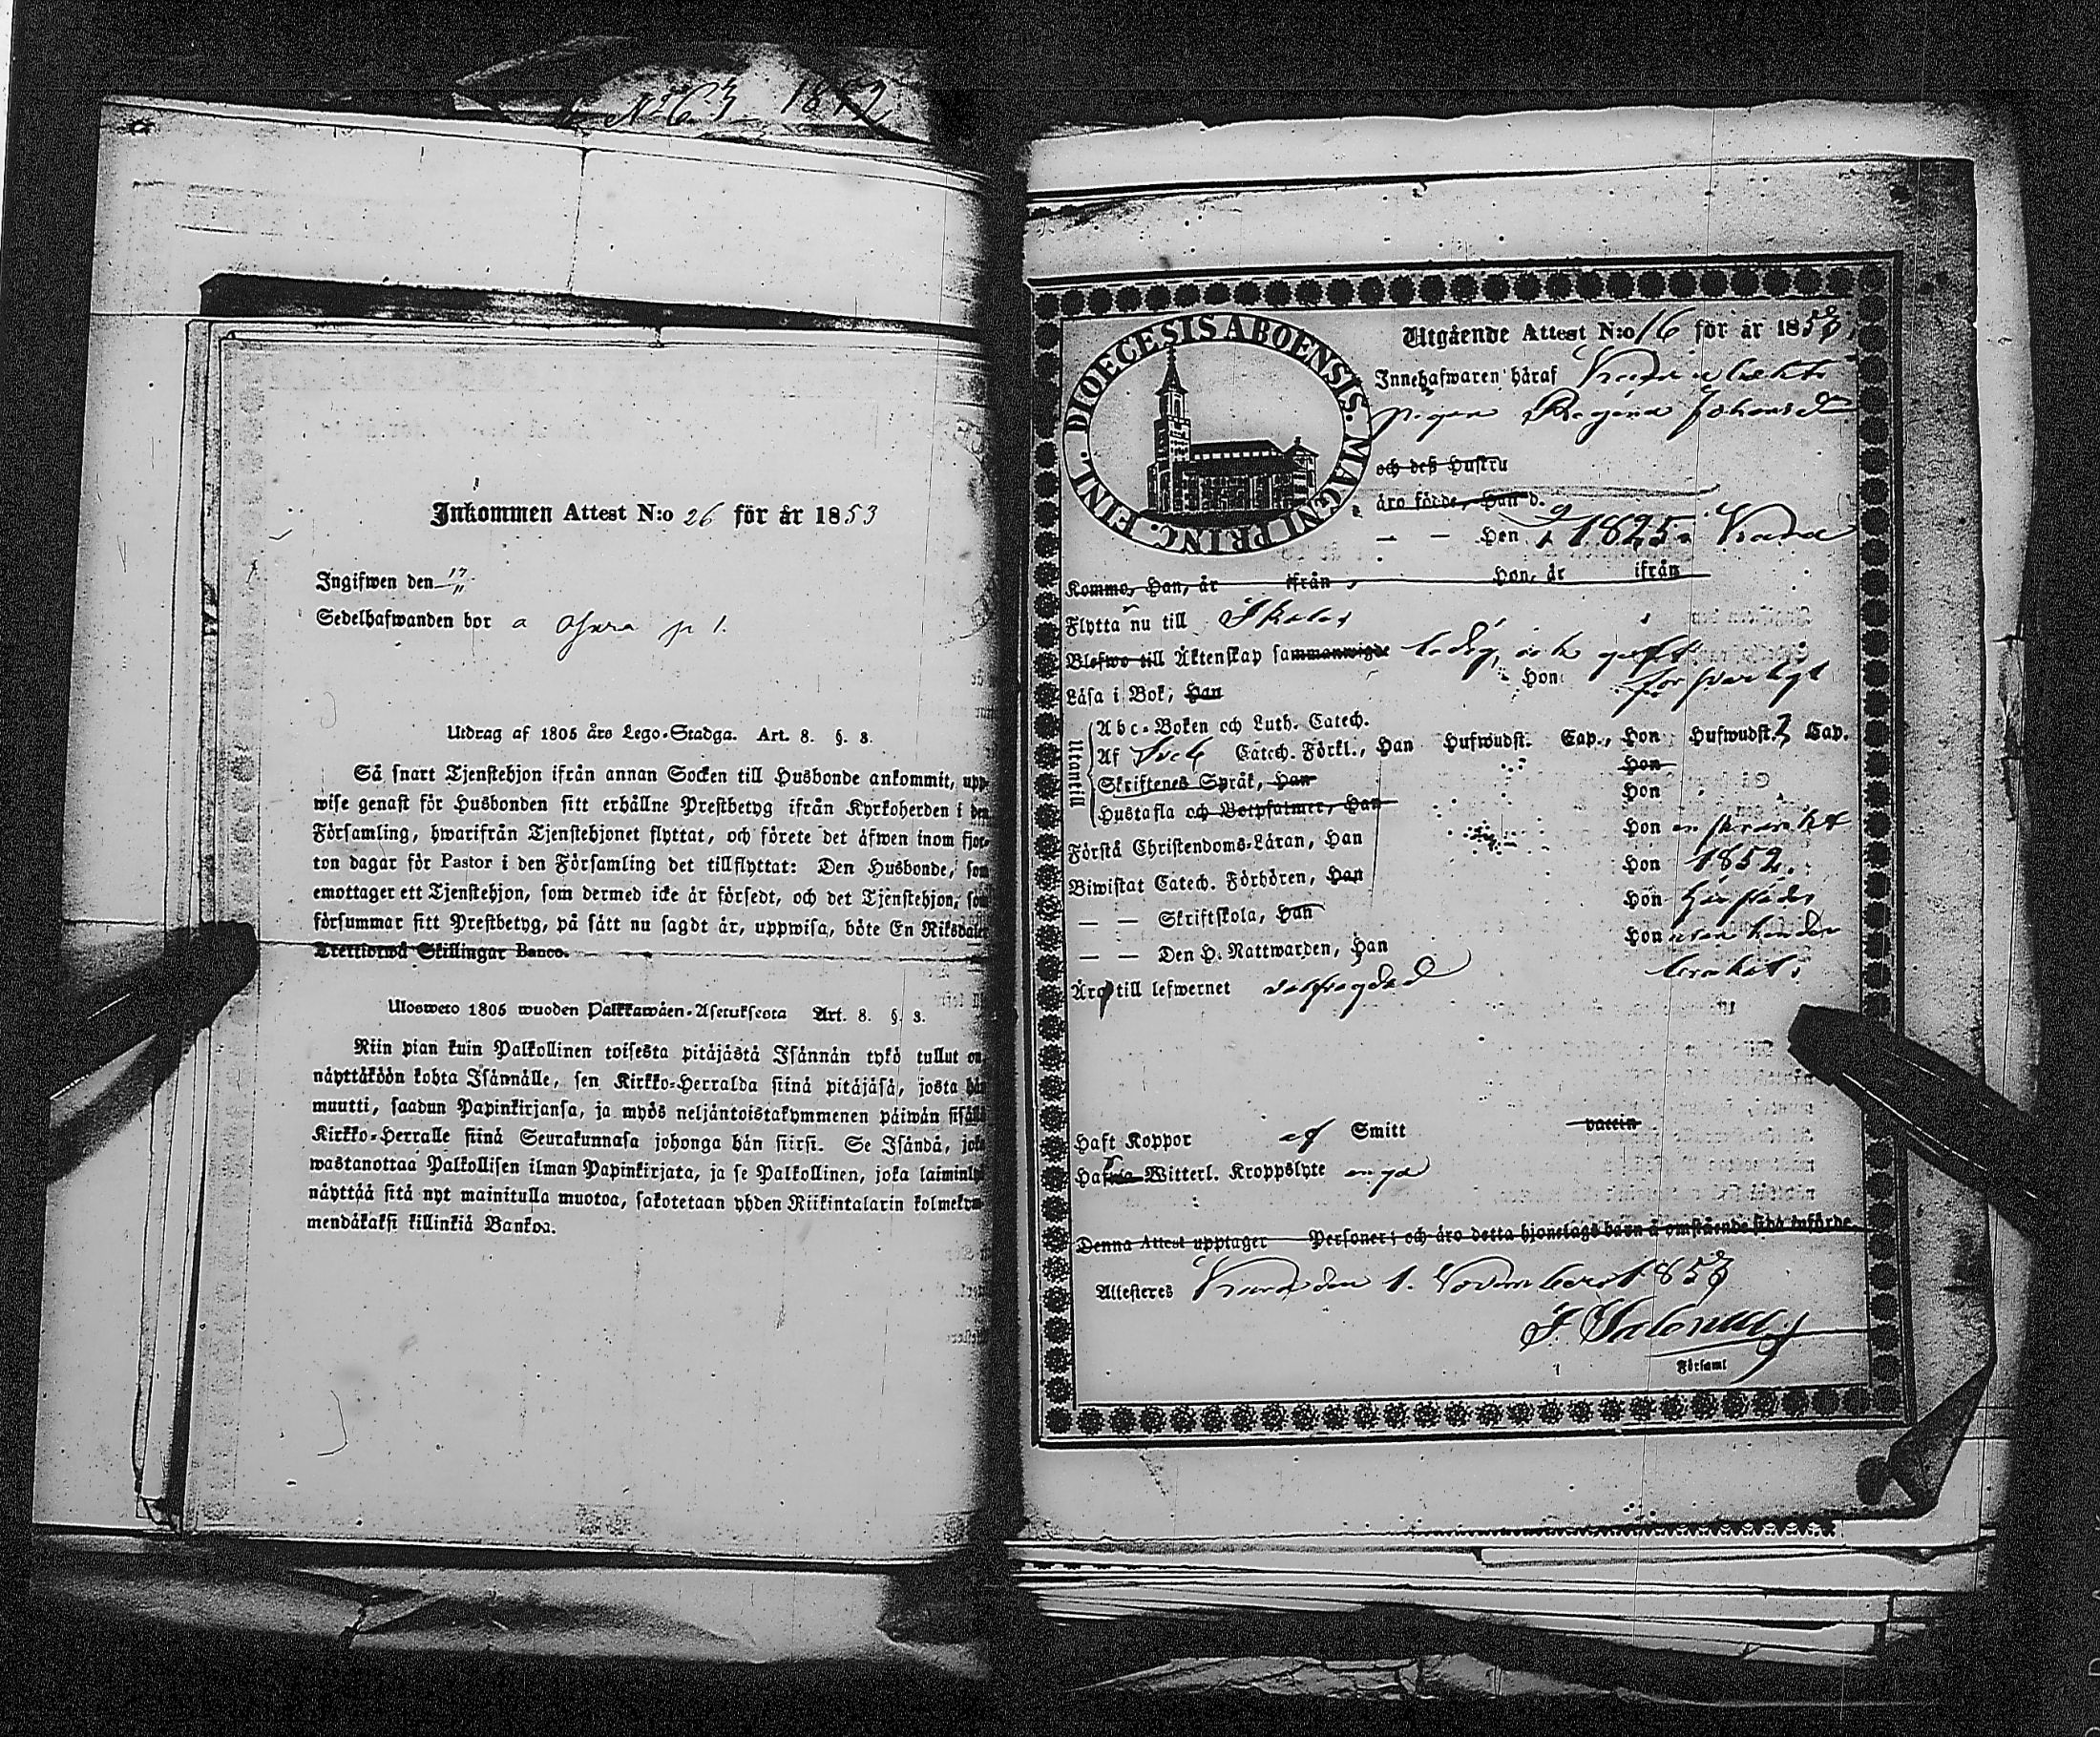 No 63 1842
Inkommen Attest N:o 26 för år 1853
Ingifwen den 17/11
Sedelhafwanden bor
Utdrag af 1805 års Lego-Stadga. Art. 8. §. 8.
Så snart Tjenstehjon ifrån annan Socken till Husbonde ankommit, upp-
wise genast för Husbonden sitt erhållne Prestbetyg ifrån Kyrkoherden i den
Församling, hwarifrån Tjenstehjonet flyttat, och förete det äfwen inom fjor-
ton dagar för Pastor i den Församling det tillflyttat: Den Husbonde, som
emottager ett Tjenstehjon, som dermed icke är försedt, och det Tjenstehjon, som
försummar sitt Prestbetyg, på sätt nu sagdt är, uppwisa, böte En Riksdaler
Trettiotwå Skillingar Banco.
Ulosweto 1805 wuoden Palkkawäen-Asetuksesta Art. 8. §. 8.
Niin pian kuin Palkollinen toisesta pitäjästä Isännän tykö tullut on,
näyttäköön kohta Isännälle, sen Kirkko-Herralda siinä pitäjäsä, josta hän
muutti, saadun Papinkirjansa, ja myös neljäntoistakymmenen päiwän sisällä
Kirkko-Herralle siinä Seurakunnasa johonga hän siirsi. Se Isändä, joka
wastanottaa Palkollisen ilman Papinkirjata, ja se Palkollinen, joka laiminlyö
näyttää sitä nyt mainitulla muotoa, sakotetaan yhden Riikintalarin kolmekym-
mendäkaksi killinkiä Bankoa.
DIOECESIS ABOENSIS. MAGNI PRINC. FINL.
Utgående Attest N:o 16 för år 1853.
Innehafwaren häraf
pigan Regina Johansd:r
och deß Hustru
äro födde, Han d.
— — Hon 1825 i Kiada
Komma, Han, år ifrån Hon, år ifrån
Flytta nu till
Blefwo till Äktenskap sammanwigde ledig, och gift
Läsa i Bok, Han Hon försvarligt
Utantill
Abc-Boken och Luth. Catech.
Af Sveb Catech. Förkl., Han Hufwudst. Cap., Hon Hufwudst. 3 Cap.
Skriftenes Språk, Han Hon
Hustafla och Botpsalmer, Han Hon
Förstå Christendoms-Läran, Han Hon
Biwistat Catech. Förhören, Han Hon 1852.
— — Skriftskola, Han Hon härstädes
— — Den H. Nattwarden, Han Hon
Äro till lefwernet
Haft Koppor ej Smitt vaccin
Hafwa Witterl. Kroppslyte
Denna Attest upptager Personer; och äro detta hjonelags barn å omstående sida införde.
Attesteras den 1. November 1853
Församl